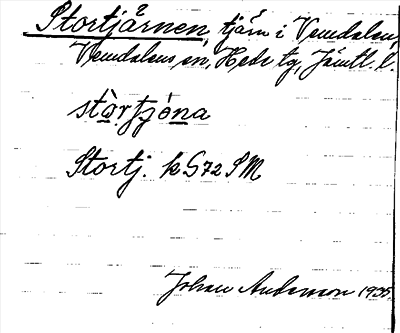 Stortjärnen, tjärn i Vemdalen,
Vemdalens sn, Hede tg, Jämtl. l.
stò̱rtjó̱na
Stortj. k G72 SM
Johan Anderson 1935.